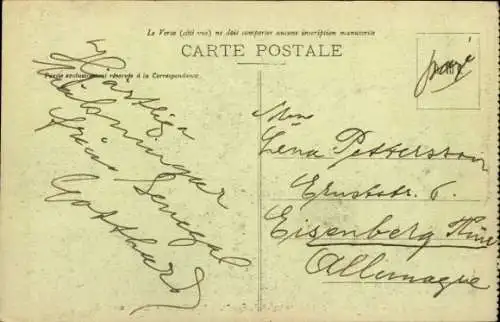 Le Verso (côté vue) ne doit comporter aucune inscription manuscrite
CARTE POSTALE
Partie exclusivement réservée à la Correspondance
Hjärtliga
hälsningar
från Senegal
Gotthard
Lena Pettersson
Ernststr. 6.
Eisenberg Thür
Allemagne